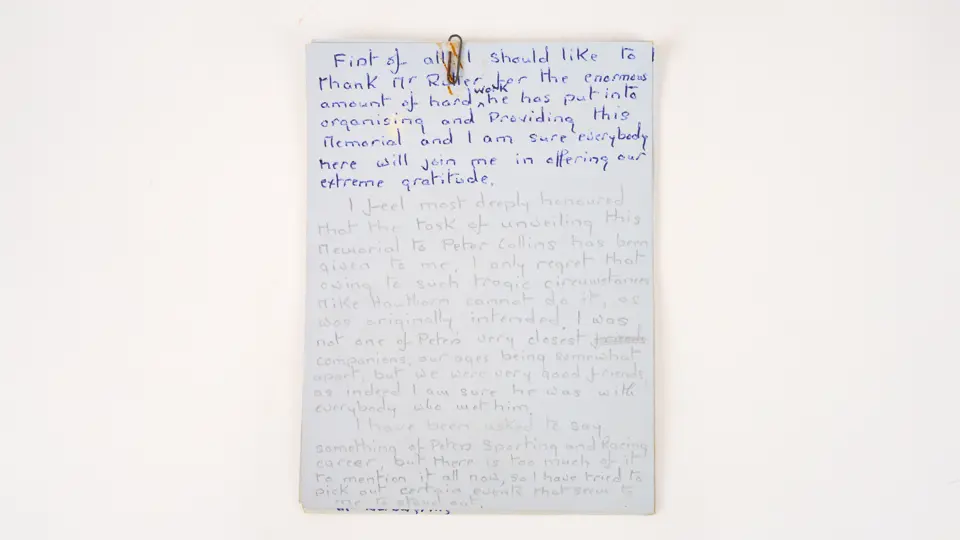 First of all, I should like to
thank Mr for the enormous
amount of hard work he has put into
organising and Providing this
Memorial and I am sure everybody
here will join me in offering our
extreme gratitude.
I feel most deeply honoured
that the task of unveiling this
Memorial to Peter Collins has been
given to me. I only regret that
owing to such tragic circumstances
Mike Hawthorn cannot do it, as
was originally intended. I was
not one of Peters very closest
companions, our ages being somewhat
apart, but we were very good friends
as indeed I am sure he was with
everybody who met him.
I have been asked to say
something of Peters Sporting and Racing
career, but there is too much of it
to mention it all now, so I have tried to
pick out certain events that seem to
me to stand out.